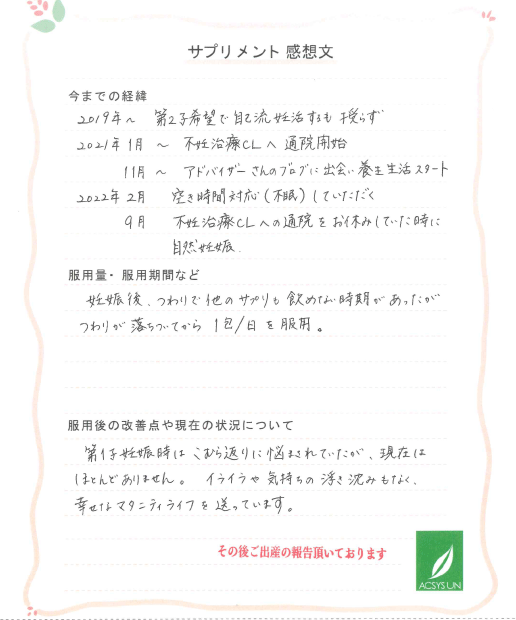 サプリメント 感想文
今までの経緯
2019年〜 第2子希望で自己流妊活するも授らず
2021年1月 〜 不妊治療CLへ通院開始
11月 〜 アドバイザーさんのブログに出会い養生生活スタート
2022年2月 空き時間対応(不眠)していただく
9月 不妊治療CLへの通院をお休みしていた時に
自然妊娠
服用量・服用期間など
妊娠後、つわりで他のサプリも飲めない時期があったが
つわりが落ちついてから 1包/日を服用。
服用後の改善点や現在の状況について
第1子妊娠時はこむら返りに悩まされていたが、現在は
ほとんどありません。 イライラや気持ちの浮き沈みもなく、
幸せなマタニティライフを送っています。
その後ご出産の報告頂いております
ACSYSUN